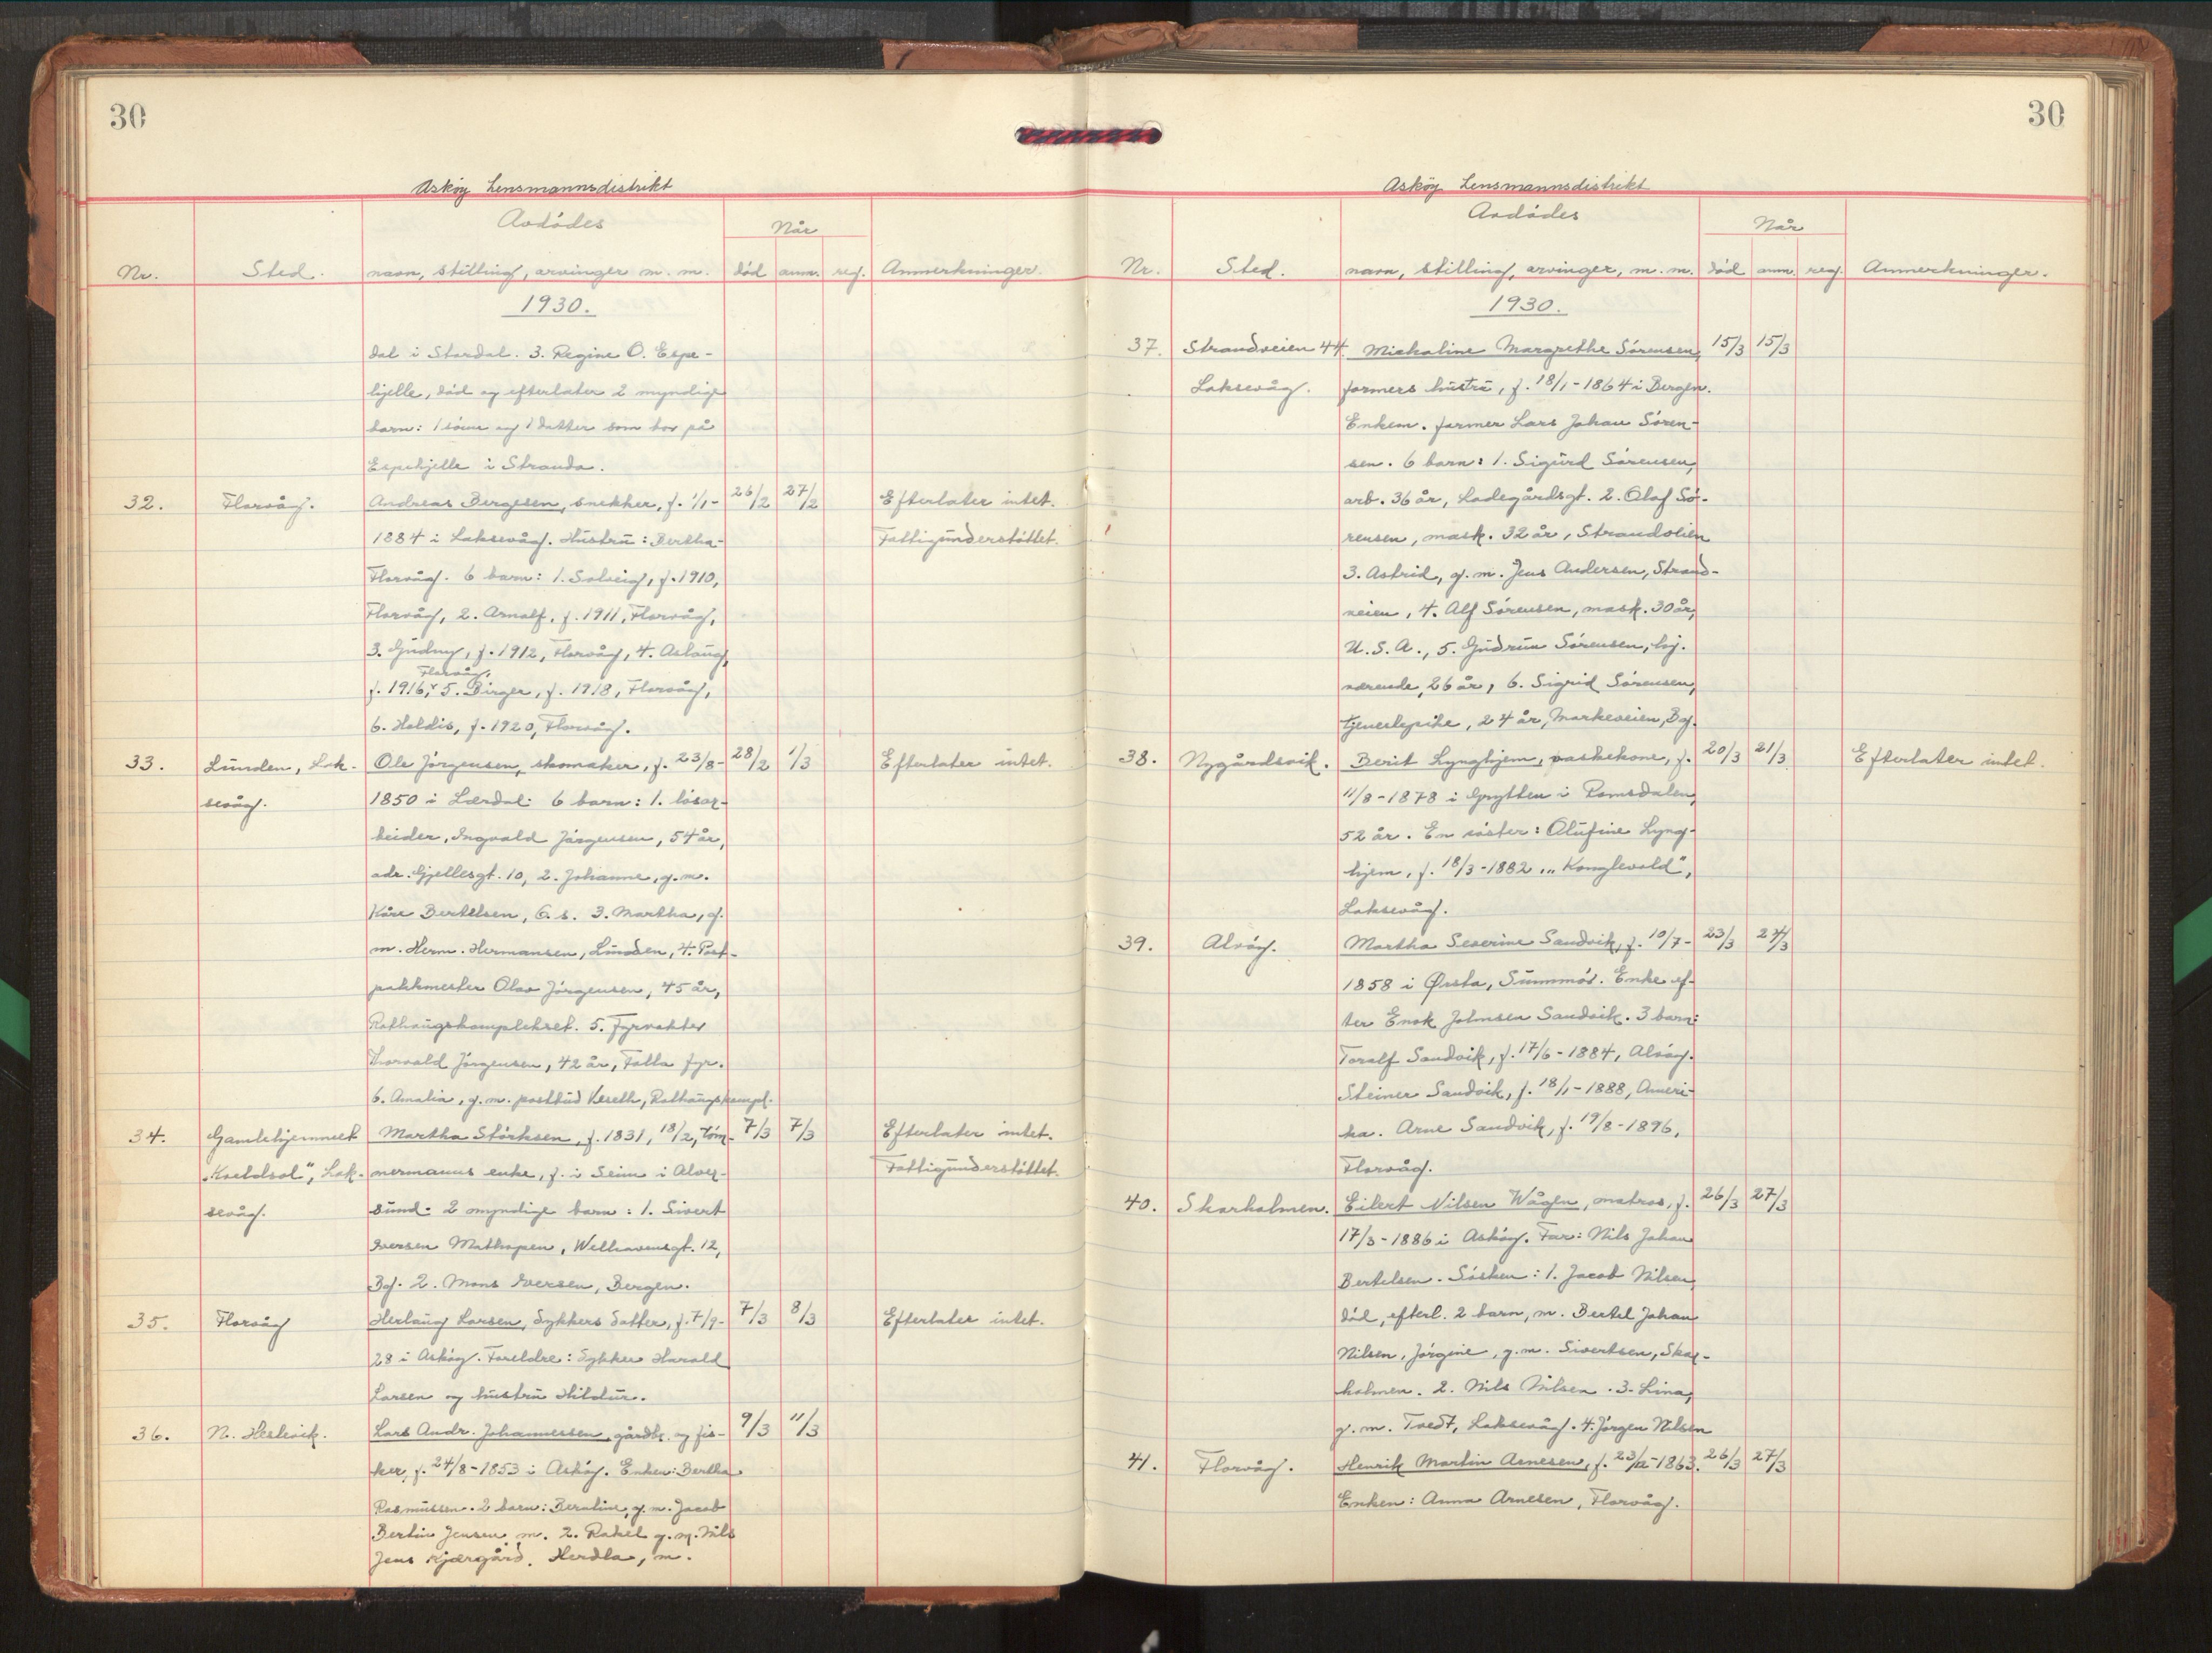 30
Asköy Lensmannsdistrikt
Avdödes
Når
Nr. Sted. navn, stilling, arvinger m. m. död anm. reg. Anmerkninger.
1930.
dal i Stardal. 3. Regine O. Espe-
hjelle, död og efterlater 2 myndige
barn: 1 sönn og 1 datter som bor på
Espehjelle i Stranda.
32. Florvåg. Andreas Bergesen, snekker, f. 1/1- 26/2 27/2 Efterlater intet.
1884 i Laksevåg. Hustru: Bertha Fattigunderstöttet.
Florvåg. 6 barn: 1. Solveig, f. 1910,
Florvåg, 2. Arnolf, f. 1911, Florvåg,
3. Gudny, f. 1912, Florvåg, 4. Aslaug,
Florvåg.
f. 1916, 5. Birger, f. 1918, Florvåg,
6. Haldis, f. 1920, Florvåg.
33. Lunden, Lak- Ole Jörgensen, skomaker, f. 23/8- 28/2 1/3 Efterlater intet.
sevåg. 1850 i Lærdal. 6 barn: 1. lösar-
beider, Ingvald Jörgensen, 54 år,
adr. Gjellesgt. 10, 2. Johanne, g. m.
Kåre Bertelsen, 6. s. 3. Martha, g.
m. Herm. Hermansen, Lunden, 4. Post-
pakkmester Olav Jörgensen, 45 år,
Rothaugskomplekset. 5. Fyrvakter
Thorvald Jörgensen, 42 år, Falla fyr.
6. Amalia, g. m. postbud Keseth, Rothaugskompl.
34. Gamlehjemmet Martha Störksen, f. 1831, 18/2, töm- 7/3 7/3 Efterlater intet.
"Kveldsol", Lak- mermanns enke, f. i Seim i Alver- Fattigunderstöttet.
sevåg. sund. 2 myndige barn: 1. Sivert
Iversen Mathopen, Welhavensgt. 12,
Bg. 2. Mons Iversen, Bergen.
35. Florvåg Herlaug Larsen, Dykkers datter, f. 7/9- 7/3 8/3 Efterlater intet.
28 i Asköy. Foreldre: Dykker Harald
Larsen og hustru Hildur.
36. N. Hetlevik. Lars Andr. Johannessen, gårdbr. og fis- 9/3 11/3
ker, f. 24/8-1853 i Asköy. Enken: Bertha
Rasmussen. 2 barn: Beraline, g. m. Jacob
Bertin Jensen m. 2. Rakel g. m. Nils
Jens Kjærgård. Herdla, m.
30
Asköy Lensmannsdistrikt
Avdödes
Når
Nr. Sted. navn, stilling, arvinger, m. m. död anm. reg. Anmerkninger.
1930.
37. Strandveien 44. Mickaline Margrethe Sörensen, 15/3 15/3
Laksevåg. formers hustru, f. 18/1-1864 i Bergen.
Enkem. former Lars Johan Sören-
sen. 6 barn: 1. Sigurd Sörensen,
arb. 36 år, Ladegårdsgt. 2. Olaf Sö-
rensen, mask. 32 år, Strandveien
3. Astrid, g. m. Jens Andersen, Strand-
veien, 4. Alf Sörensen, mask. 30 år,
U. S. A., 5. Gudrun Sörensen, hj.
værende, 26 år, 6. Sigrid Sörensen,
tjenestepike, 24 år, Markeveien, Bg.
38. Nygårdsvik. Berit Lynghjem, vaskekone, f. 20/3 21/3 Efterlater intet.
11/8-1878 i Grytten i Romsdalen,
52 år. En söster: Olufine Lyng-
hjem, f. 18/3-1882, "Konglevold",
Laksevåg.
39. Alvöy. Martha Severine Sandvik, f. 10/7- 23/3 24/3
1858 i Ørsta, Sunnmör. Enke ef-
ter Enok Johnsen Sandvik. 3 barn:
Toralf Sandvik, f. 17/6-1884, Alvöy.
Steiner Sandvik, f. 18/1-1888, Ameri-
ka. Arne Sandvik, f. 19/8-1896,
Florvåg.
40. Skarholmen. Eilert Nilsen Wågen, matros, f. 26/3 27/3
17/3-1886 i Asköy. Far: Nils Johan
Bertelsen. Sösken: 1. Jacob Nilsen,
död, efterl. 2 barn, m. Bertel Johan
Nilsen, Jörgine, g. m. Sivertsen, Skar-
holmen. 2. Nils Nilsen. 3. Lina,
g. m. Tvedt, Laksevåg. 4. Jörgen Nilsen
41. Florvåg. Henrik Martin Arnesen, f. 23/12-1863. 26/3 27/3
Enken: Anna Arnesen, Florvåg.